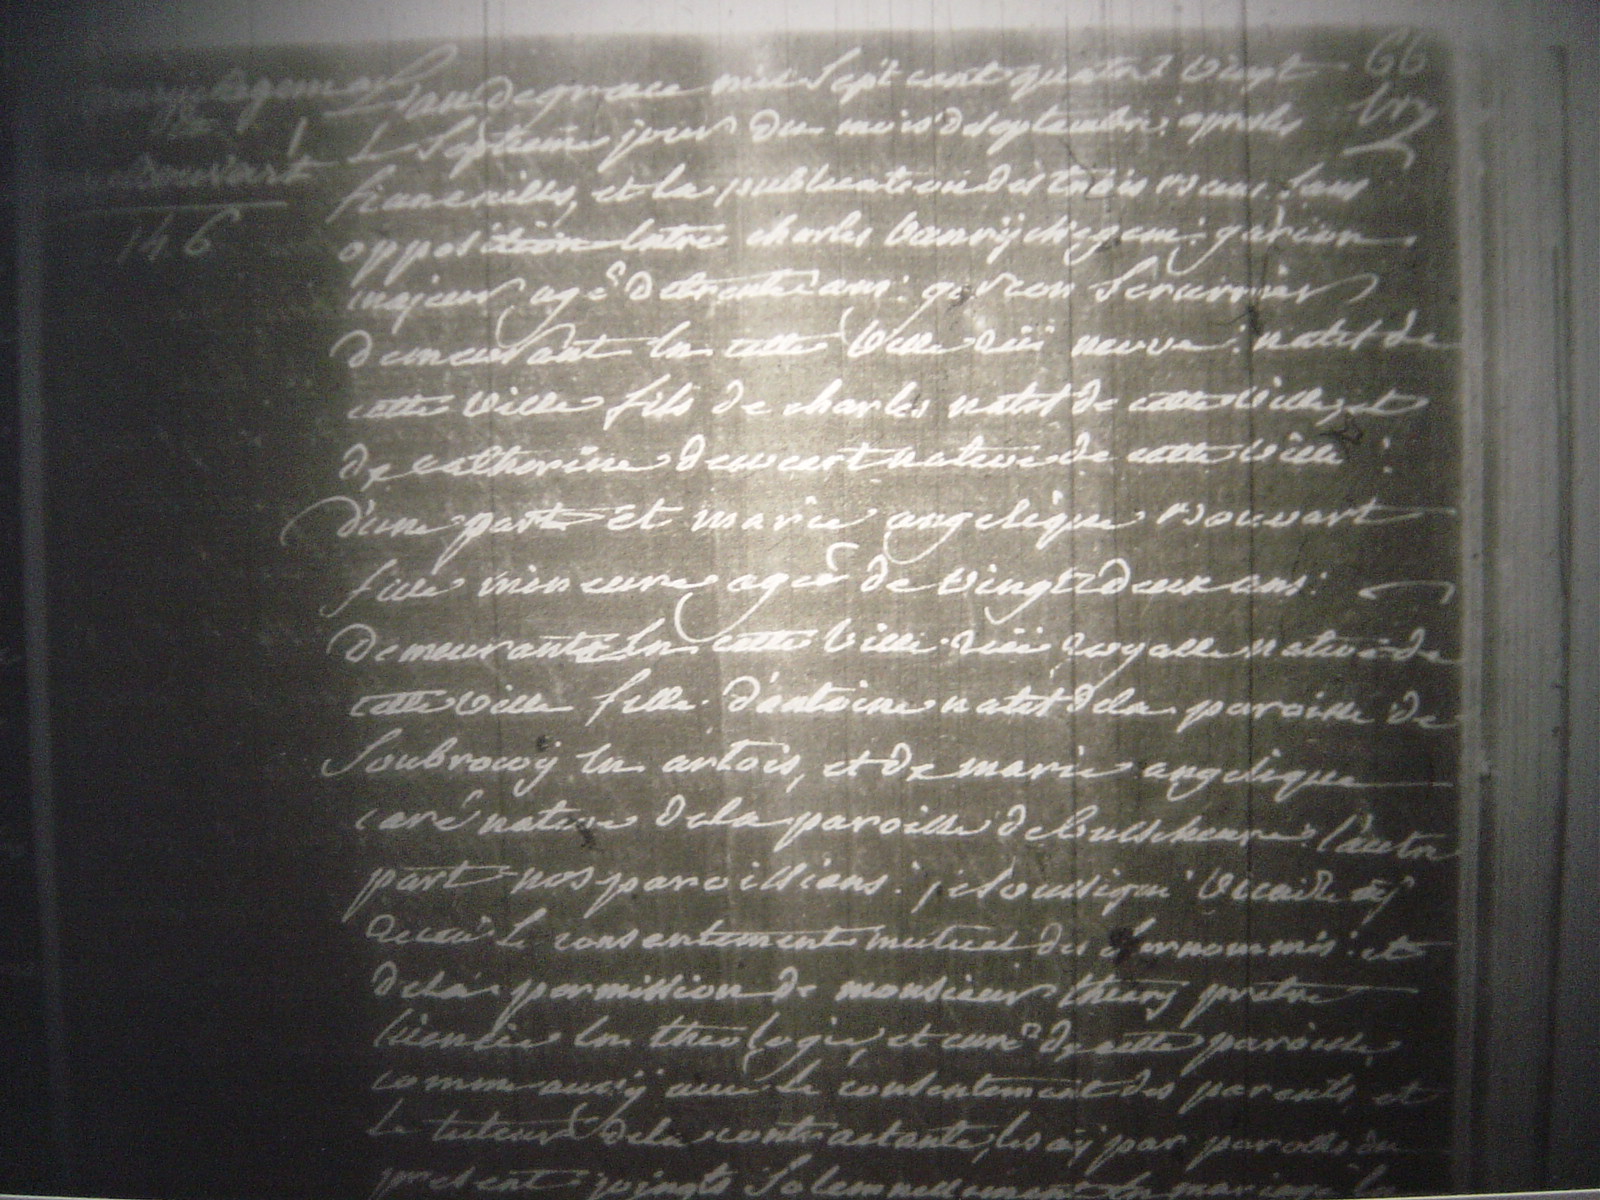 66
L'an de grace mil sept cent quatre vingt
le septieme jour du mois de septembre, apres les
fiancailles, et la publication des trois bans sans
opposition entre charles vanrijckegem: garcon
majeur agé de trente ans: garcon serurrier
demeurant en cette ville rüe neuve: natif de
cette ville fils de charles natif de cette ville, et
de catherine dewaert native de cette ville:
d'une part et marie angelique bouvart
fille mineure agée de vingt deux ans:
demeurante en cette ville rüe royalle native de
cette ville fille d'antoine natif de la paroisse de
Soubrowÿ en artois, et de marie angelique
caré native de la paroisse de l'autre
part nos paroissiens: je soussigné vicaire aÿ
le consentement mutuel des surnommés: et
de la permission de monsieur thery pretre
licencié en theologie, et curé de cette paroisse
comme aussÿ avec le consentement des parents, et
le tuteur de la contractante, les aÿ par paroles du
present joingts solemnellement en mariage
146